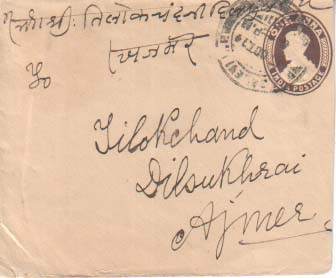 श्री तिलोकचंदजी
अजमेर
ONE ANNA
INDIA POSTAGE
To
Tilokchand
Dilsukhrai
Ajmer